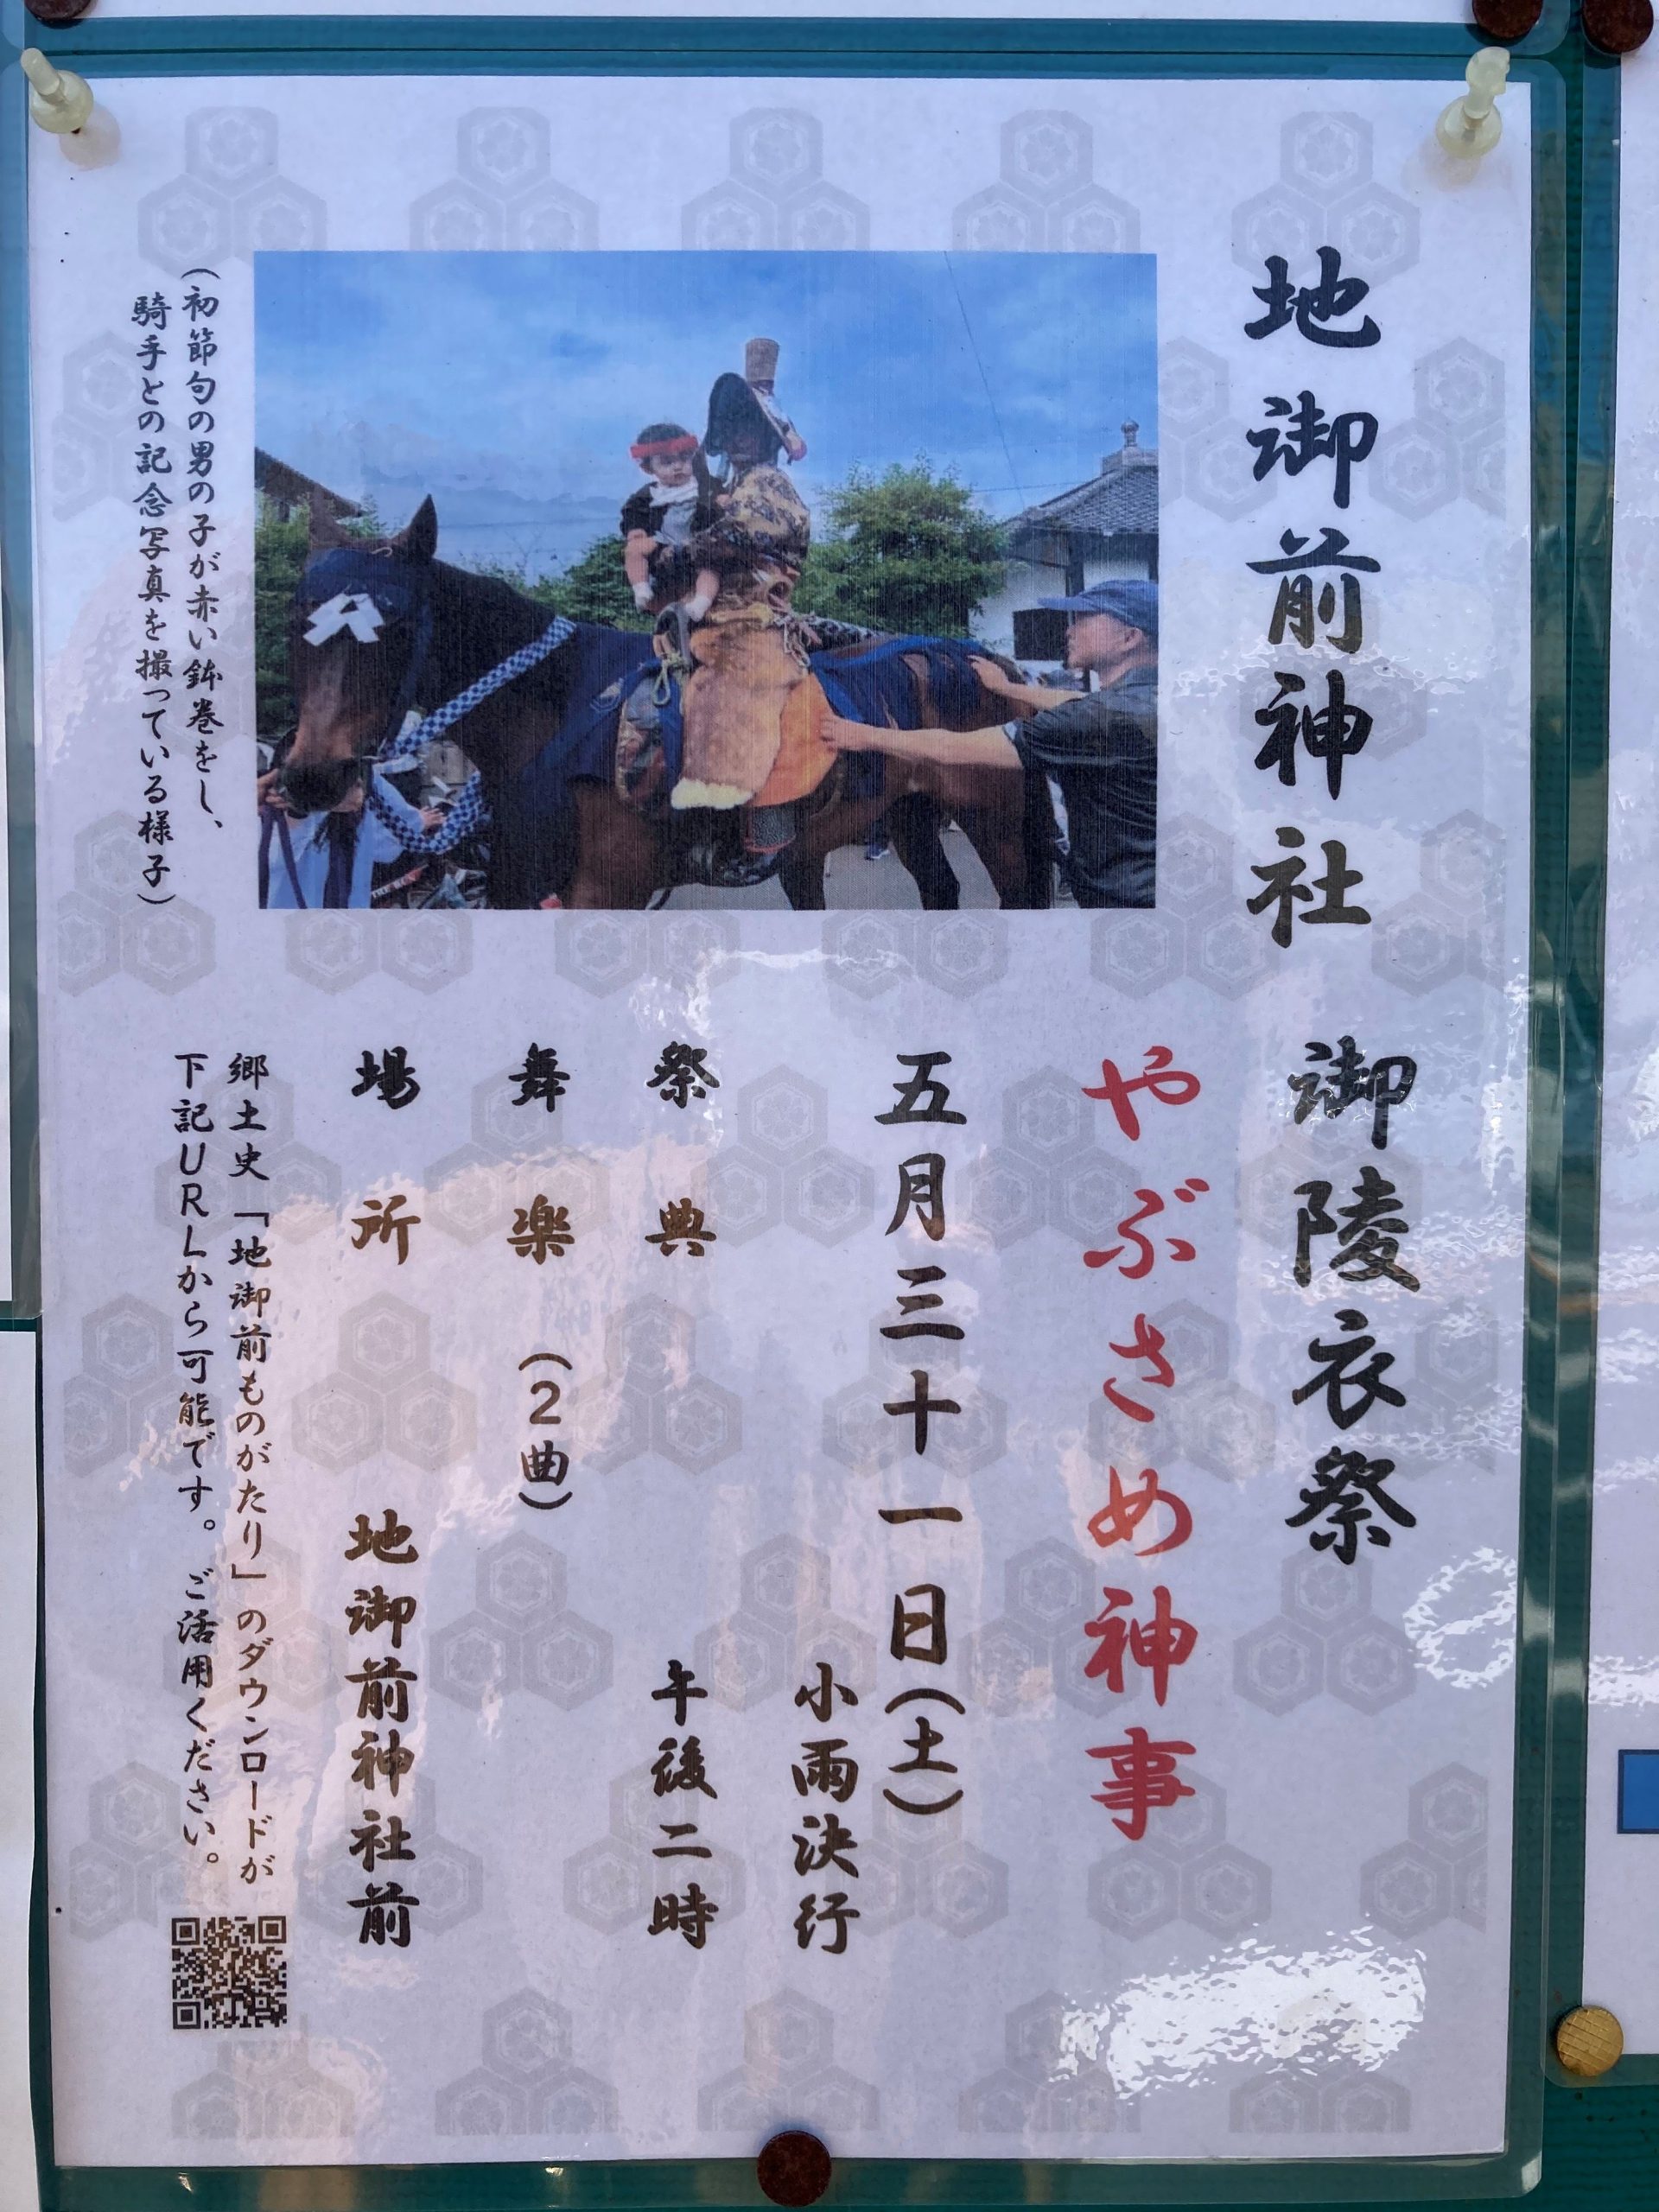 地御前神社
御陵衣祭
やぶさめ神事
五月三十一日(土)
小雨決行
祭典 午後二時
舞楽 (2曲)
場所 地御前神社前
(初節句の男の子が赤い鉢巻をし、
騎手との記念写真を撮っている様子)
郷土史「地御前ものがたり」のダウンロードが
下記URLから可能です。ご活用ください。